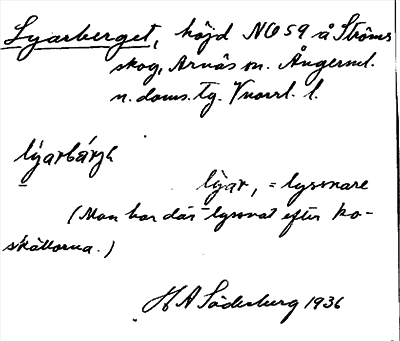 Lyarberget, höjd NO 59 å Ströms
skog, Arnäs sn. Ångerml.
n. doms. tg. Vnorrl. l.
lyarbárjh
lyar, = lyssnare
(Man har där lyssnat efter ko-
skällorna.)
H A Söderburg 1936